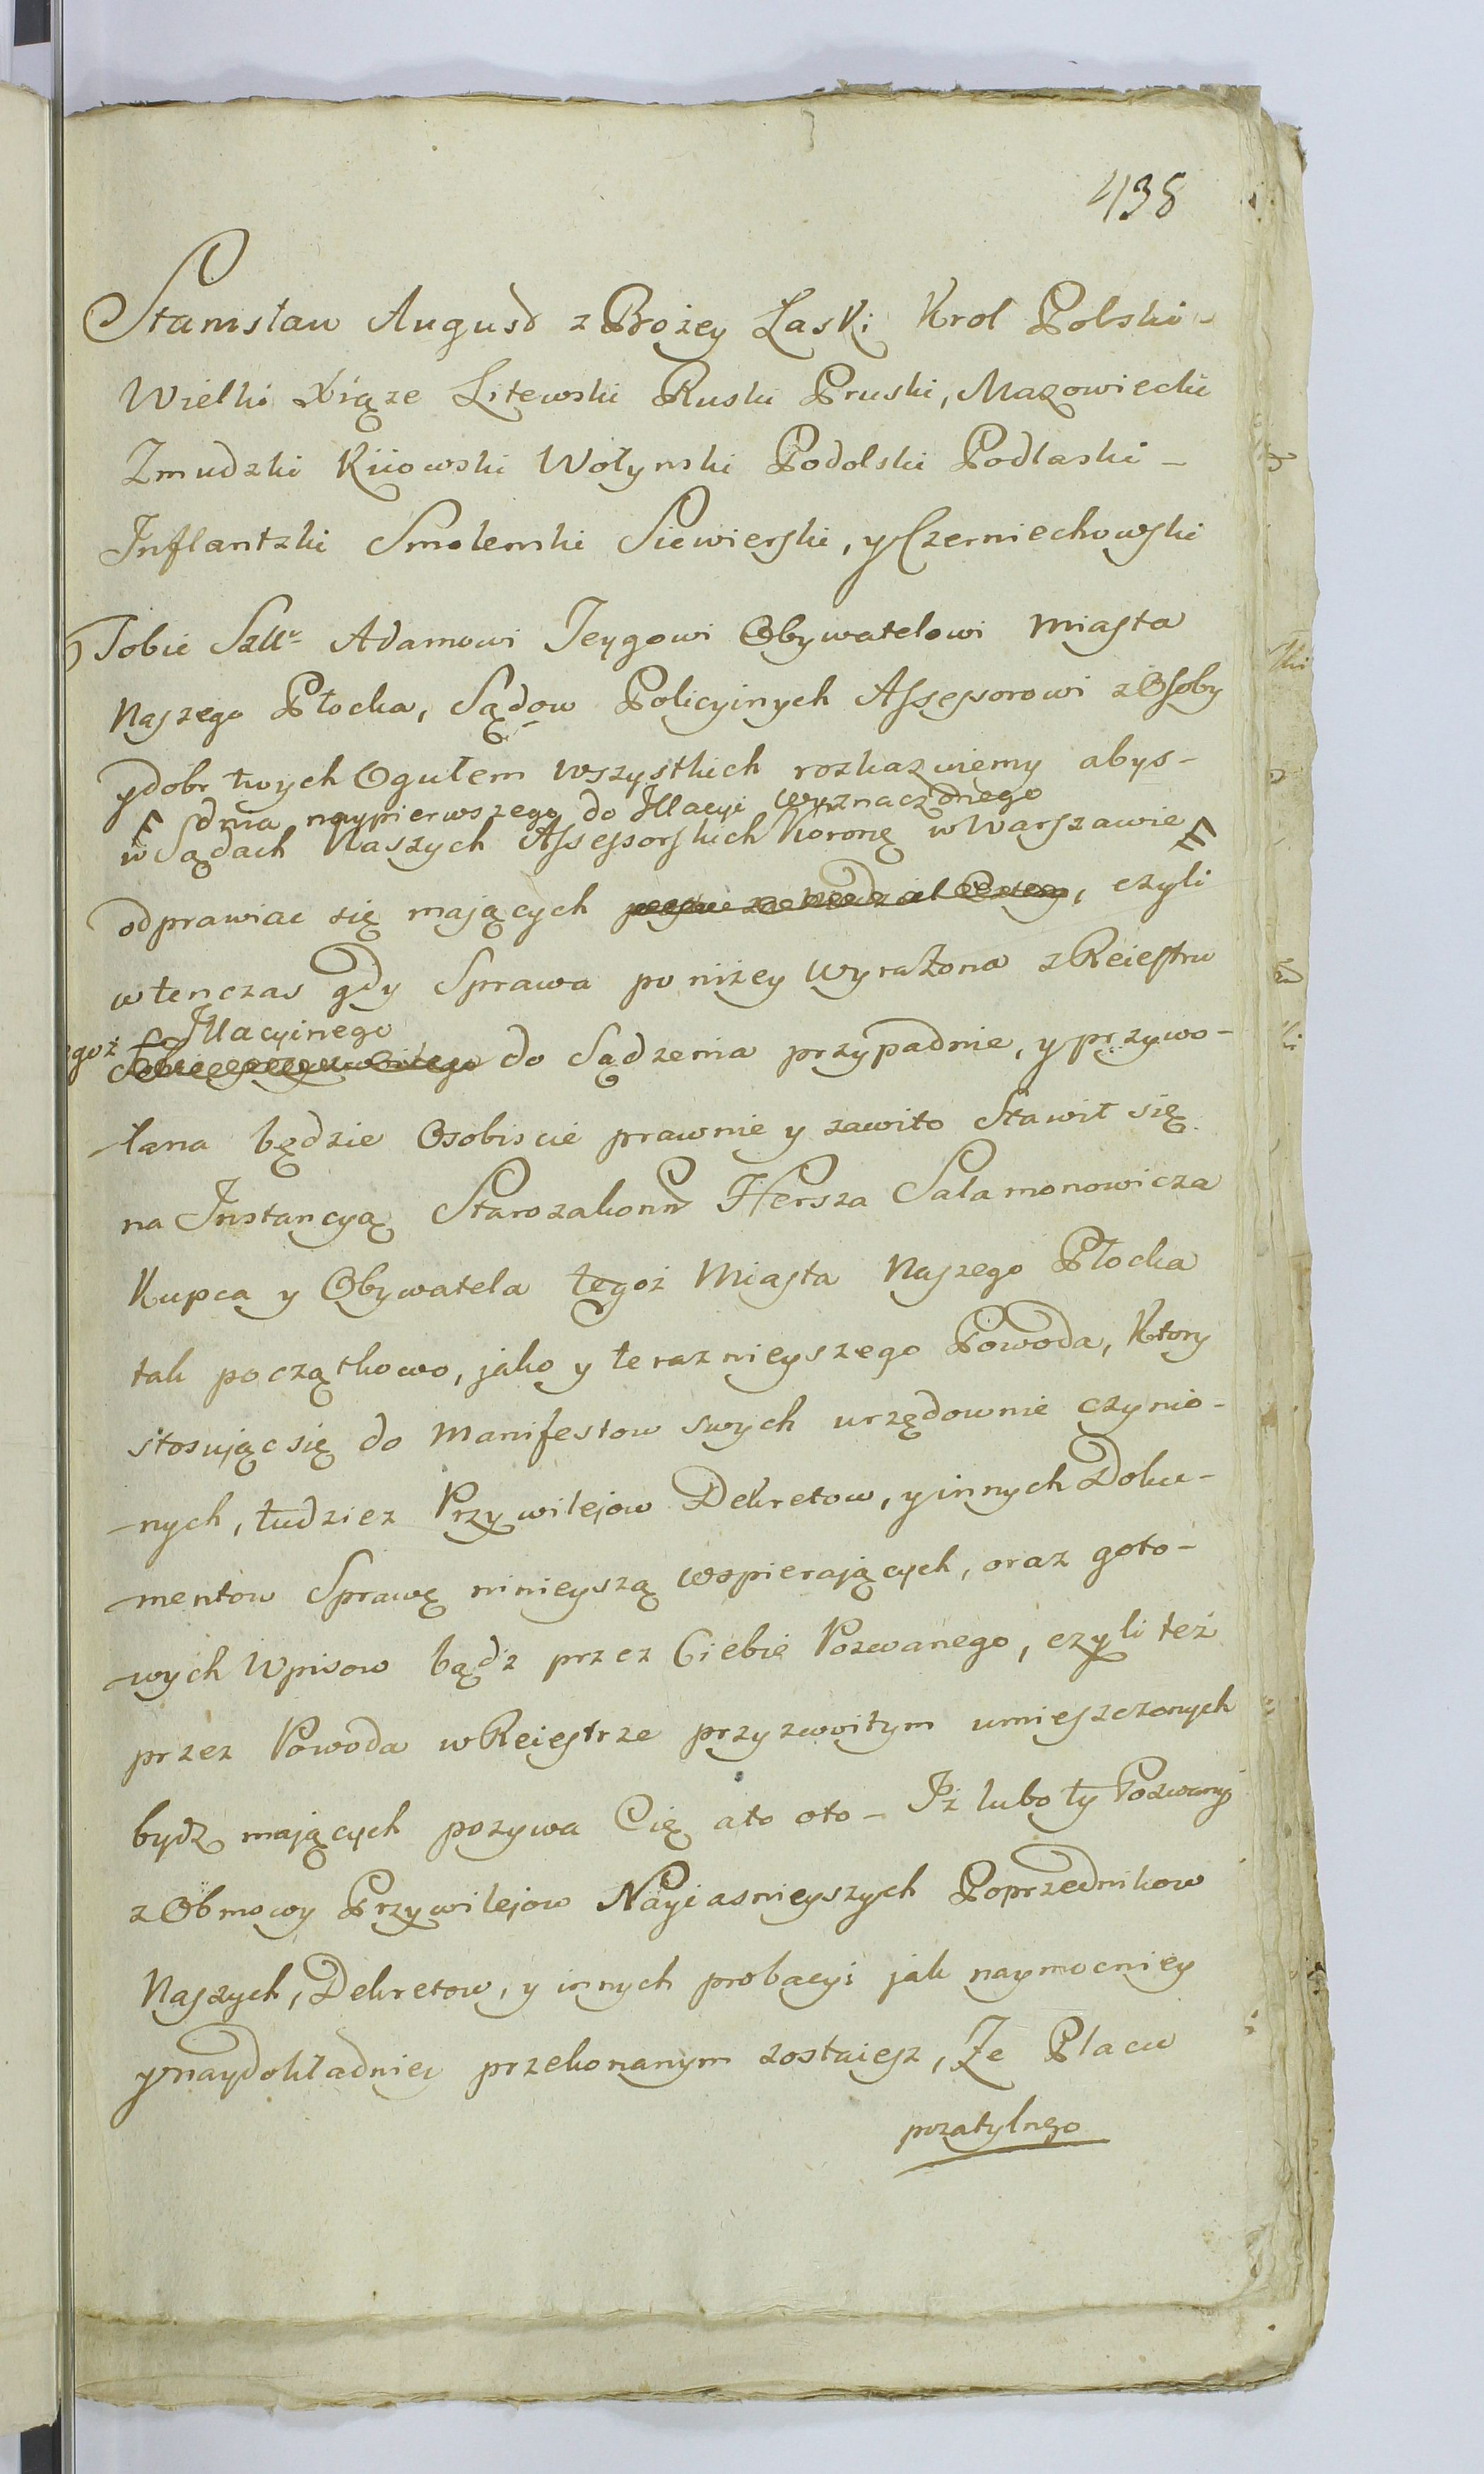 438
Stanisław August z Bożey Łaski Krol Polski
Wielki Xiąze Litewski Ruski Pruski, Mazowiecki
Zmudzki Kiiowski Wołynski Podolski Podlaski -
Inflantzki Smolenski Siewierski, y Czerniechowski
Tobie Adamowi Jeygowi Obywatelowi Miasta
Naszego Płocka, Sądow Policyinych Assessorowi z Osoby
y dobr twych Ogułem wszystkich rozkazuiemy abys -
dnia naypierwszego do Illacyi wyznaczonego
w Sądach Naszych Assessorskich Koronę w Warszawie
odprawiac się mających, czyli
wtenczas gdy Sprawa poniżey wyrażona z Reiestru
egoż Illacyinego
do Sądzenia przypadnie, y przywo-
łana będzie Osobiscie prawnie y zawito Stawił się
na Instancyą Starozakonn Hersza Salamonowicza
Kupca y Obywatela tegoż Miasta Naszego Płocka
tak początkowo, jako y teraznieyszego Powoda, Ktory
stosując się do Manifestow swych urzędownie czynio-
nych, tudziez Przywilejow Dekretow, y innych Doku-
mentow Sprawę ninieyszą wspierających, oraz goto-
wych Wpisow bądz przez Ciebie Pozwanego, czyli też
przez Powoda w Reiestrze przyzwoitym umieszczonych
bydz mających pozywa Cię a to oto - Iż lubo ty Pozwany
z Obmowy Przywilejow Nayiasnieyszych Poprzednikow
Naszych, Dekretow, y innych probacyi jak naymocniey
y naydokładniey przekonanym zostaiesz, Ze Placu
pozatylnego